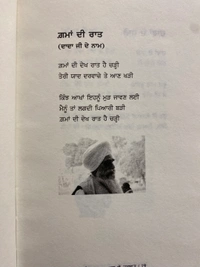 ਗ਼ਮਾਂ ਦੀ ਰਾਤ
(ਦਾਦਾ ਜੀ ਦੇ ਨਾਮ)
ਗ਼ਮਾਂ ਦੀ ਦੇਖ ਰਾਤ ਹੈ ਚੜ੍ਹੀ
ਤੇਰੀ ਯਾਦ ਦਰਵਾਜ਼ੇ ਤੇ ਆਣ ਖੜੀ
ਕਿੰਝ ਆਖਾਂ ਇਹਨੂੰ ਮੁੜ ਜਾਵਣ ਲਈ
ਮੈਨੂੰ ਤਾਂ ਲਗਦੀ ਪਿਆਰੀ ਬੜੀ
ਗ਼ਮਾਂ ਦੀ ਦੇਖ ਰਾਤ ਹੈ ਚੜ੍ਹੀ